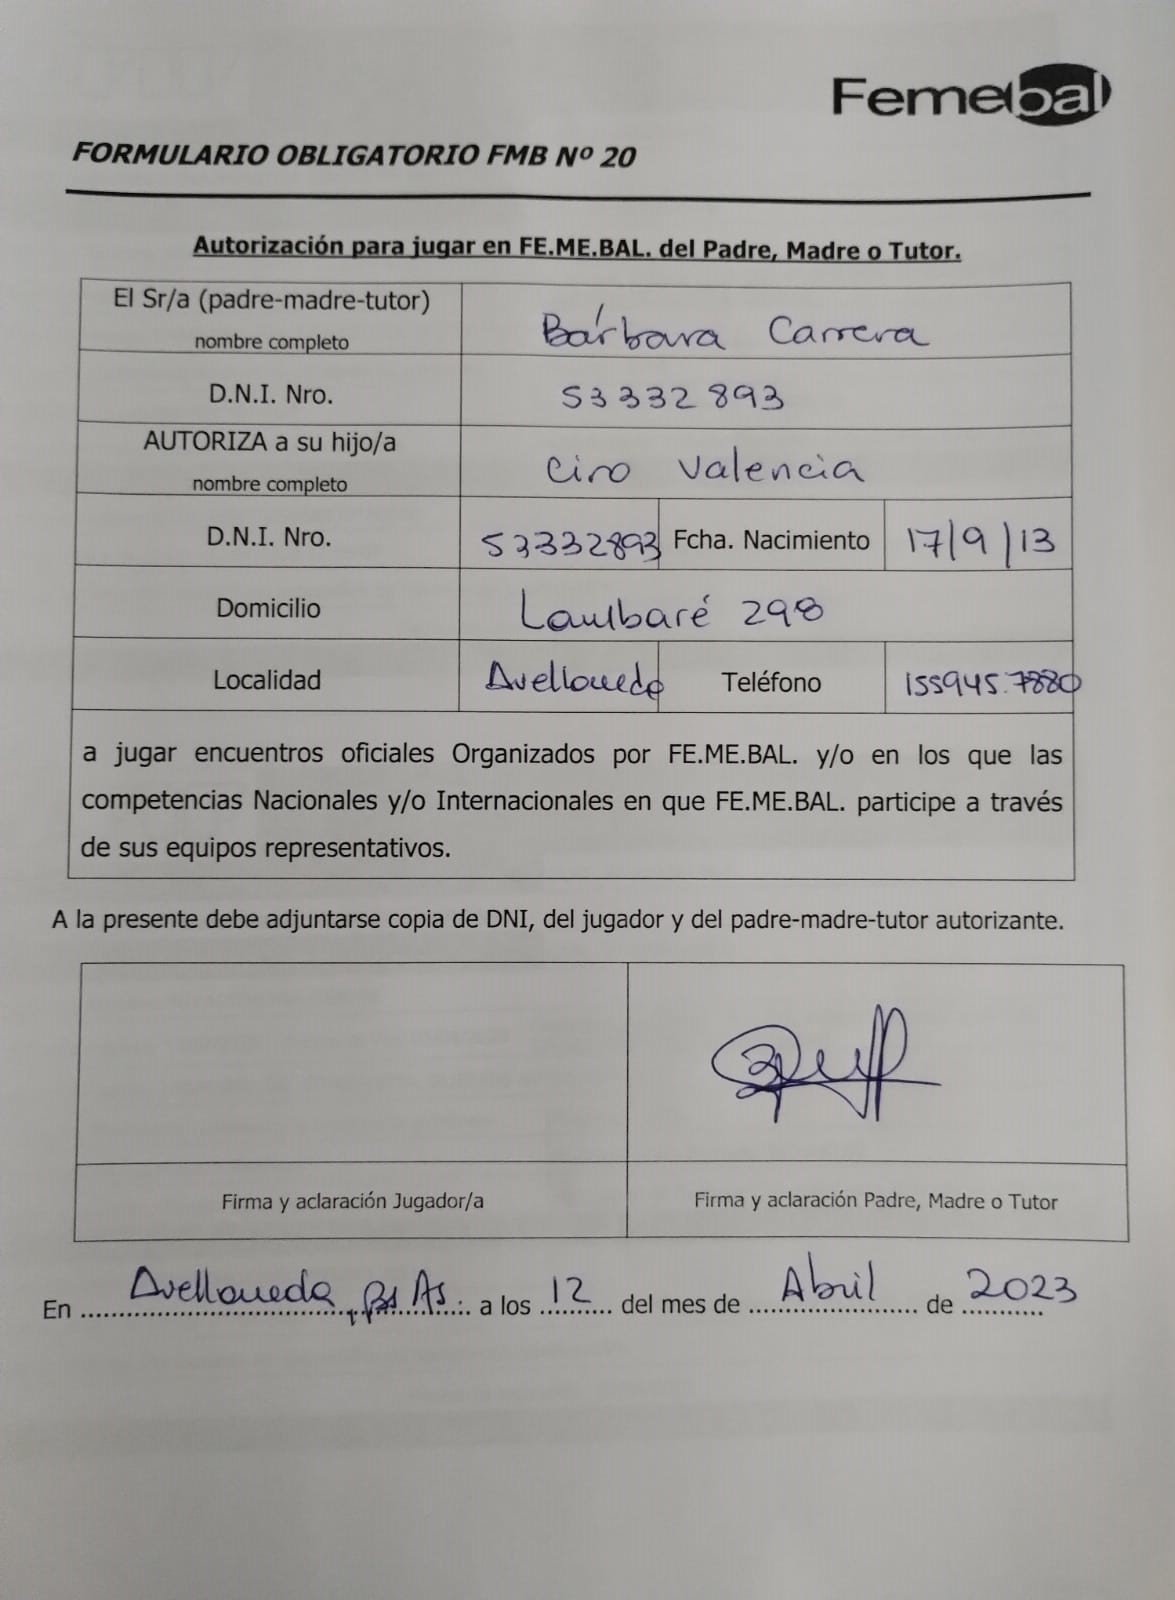 Femebal
FORMULARIO OBLIGATORIO FMB Nº 20
Autorización para jugar en FE.ME.BAL. del Padre, Madre o Tutor.
El Sr/a (padre-madre-tutor)
nombre completo
Bárbara Carrera
D.N.I. Nro.
53332893
AUTORIZA a su hijo/a
nombre completo
Ciro Valencia
D.N.I. Nro.
53332893
Fcha. Nacimiento
17/9/13
Domicilio
298
Localidad
Avellaneda
Teléfono
155945.7880
a jugar encuentros oficiales Organizados por FE.ME.BAL. y/o en los que las
competencias Nacionales y/o Internacionales en que FE.ME.BAL. participe a través
de sus equipos representativos.
A la presente debe adjuntarse copia de DNI, del jugador y del padre-madre-tutor autorizante.
Firma y aclaración Jugador/a
Firma y aclaración Padre, Madre o Tutor
En Avellaneda, Bs As. a los 12 del mes de Abril de 2023